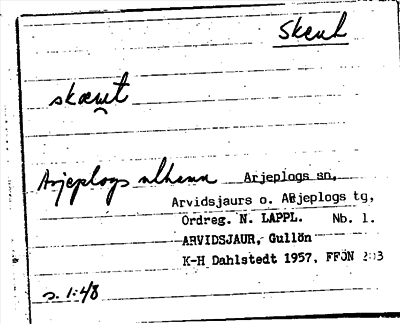 Skeut
skæwt
Arjeplogs Arjeplogs sn,
Arvidsjaurs o. Arjeplogs tg,
Ordreg. N. LAPPL. Nb. 1.
ARVIDSJAUR, Gullön
K-H Dahlstedt 1957. FFÖN 2:3
s. 1:48